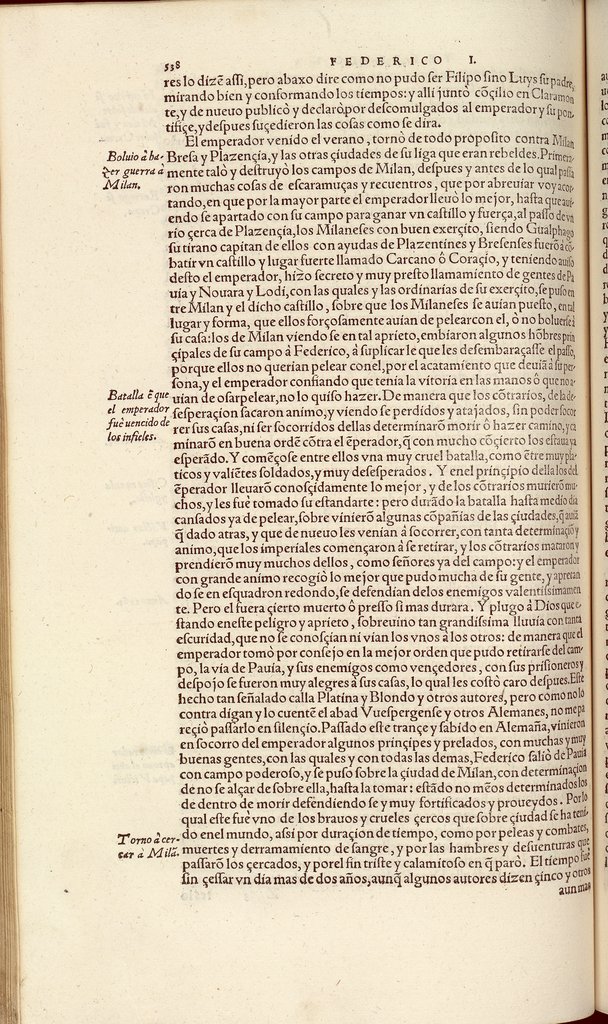 538
FEDERICO I.
res lo dizẽ assi, pero abaxo dire como no pudo ser Filipo sino Luys su padre,
mirando bien y conformando los tiempos: y alli juntò cõçilio en Claramon
te, y de nueuo publicò y declarò por descomulgados al emperador y su pon
tifiçe, y despues suçedieron las cosas como se dira.
El emperador venido el verano, tornò de todo proposito contra Milan
Boluio à ha-
çer guerra à
Milan.
Bresa y Plazençia, y las otras çiudades de su liga que eran rebeldes. Primera-
mente talò y destruyò los campos de Milan, despues y antes de lo qual passa
ron muchas cosas de escaramuças y recuentros, que por abreuiar voy acor
tando, en que por la mayor parte el emperador lleuò lo mejor, hasta que aui-
endo se apartado con su campo para ganar vn castillo y fuerça, al passo de vn
rio çerca de Plazençia, los Milaneses con buen exerçito, siendo Gualphago
su tirano capitan de ellos con ayudas de Plazentines y Bresenses fuerõ à cõ-
batir vn castillo y lugar fuerte llamado Carcano ò Coraçio, y teniendo auiso
desto el emperador, hizo secreto y muy presto llamamiento de gentes de Pa
uia y Nouara y Lodi, con las quales y las ordinarias de su exerçito, se puso en
tre Milan y el dicho castillo, sobre que los Milaneses se auian puesto, en tal
lugar y forma, que ellos forçosamente auian de pelear con el, ò no boluerse à
su casa: los de Milan viendo se en tal aprieto, embiaron algunos hõbres prin
çipales de su campo à Federico, à suplicar le que les desembaraçasse el passo,
porque ellos no querian pelear con el, por el acatamiento que deuiã à su per-
sona, y el emperador confiando que tenia la vitoria en las manos ò que no a-
Batalla ẽ que
el emperador
fuè uencido de
los infieles.
uian de osar pelear, no lo quiso hazer. De manera que los cõtrarios, de la de-
sesperaçion sacaron animo, y viendo se perdidos y atajados, sin poder socor
rer sus casas, ni ser socorridos dellas determinarõ morir ò hazer camino, y ca
minarõ en buena ordẽ cõtra el ẽperador, q̃ con mucho cõçierto los estaua ya
esperãdo. Y comẽçose entre ellos vna muy cruel batalla, como ẽtre muy pla-
ticos y valiẽtes soldados, y muy desesperados. Y en el prinçipio della los del
ẽperador lleuarõ conosçidamente lo mejor, y de los cõtrarios murierõ mu-
chos, y les fuè tomado su estandarte: pero durãdo la batalla hasta medio dia
cansados ya de pelear, sobre vinierõ algunas cõpañias de las çiudades, q̃ auiã
q̃dado atras, y que de nueuo les venian à socorrer, con tanta determinaçiõ y
animo, que los imperiales començaron à se retirar, y los cõtrarios mataron y
prendierõ muy muchos dellos, como señores ya del campo: y el emperador
con grande animo recogiò lo mejor que pudo mucha de su gente, y apretan
do se en esquadron redondo, se defendian de los enemigos valentissimamen
te. Pero el fuera çierto muerto ò presso si mas durara. Y plugo à Dios que e-
stando en este peligro y aprieto, sobreuino tan grandissima lluuia con tanta
escuridad, que no se conosçian ni vian los vnos à los otros: de manera que el
emperador tomò por consejo en la mejor orden que pudo retirarse del cam-
po, la via de Pauia, y sus enemigos como vençedores, con sus prisioneros y
despojo se fueron muy alegres à sus casas, lo qual les costò caro despues. Este
hecho tan señalado calla Platina y Blondo y otros autores, pero como no lo
contra digan y lo cuentẽ el abad Vuespergense y otros Alemanes, no me pa
reçiò passarlo en silençio. Passado este trançe y sabido en Alemaña, vinieron
en socorro del emperador algunos prinçipes y prelados, con muchas y muy
buenas gentes, con las quales y con todas las demas, Federico saliò de Pauia
con campo poderoso, y se puso sobre la çiudad de Milan, con determinaçion
de no se alçar de sobre ella, hasta la tomar: estãdo no mẽos determinados los
de dentro de morir defendiendo se y muy fortificados y proueydos. Por lo
qual este fuè vno de los brauos y crueles çercos que sobre çiudad se ha teni-
Torno à cer-
car à Milã.
do en el mundo, assi por duraçion de tiempo, como por peleas y combates,
muertes y derramamiento de sangre, y por las hambres y desuenturas que
passarõ los çercados, y por el fin triste y calamitoso en q̃ parò. El tiempo fuè
sin çessar vn dia mas de dos años, aunq̃ algunos autores dizen çinco y otros
aun mas